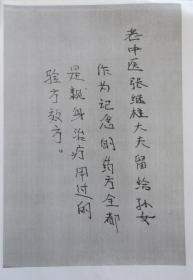 老中医张继桂大夫留给孙女
作为记念的药方全都
是親身治疗用过的
验方效方。